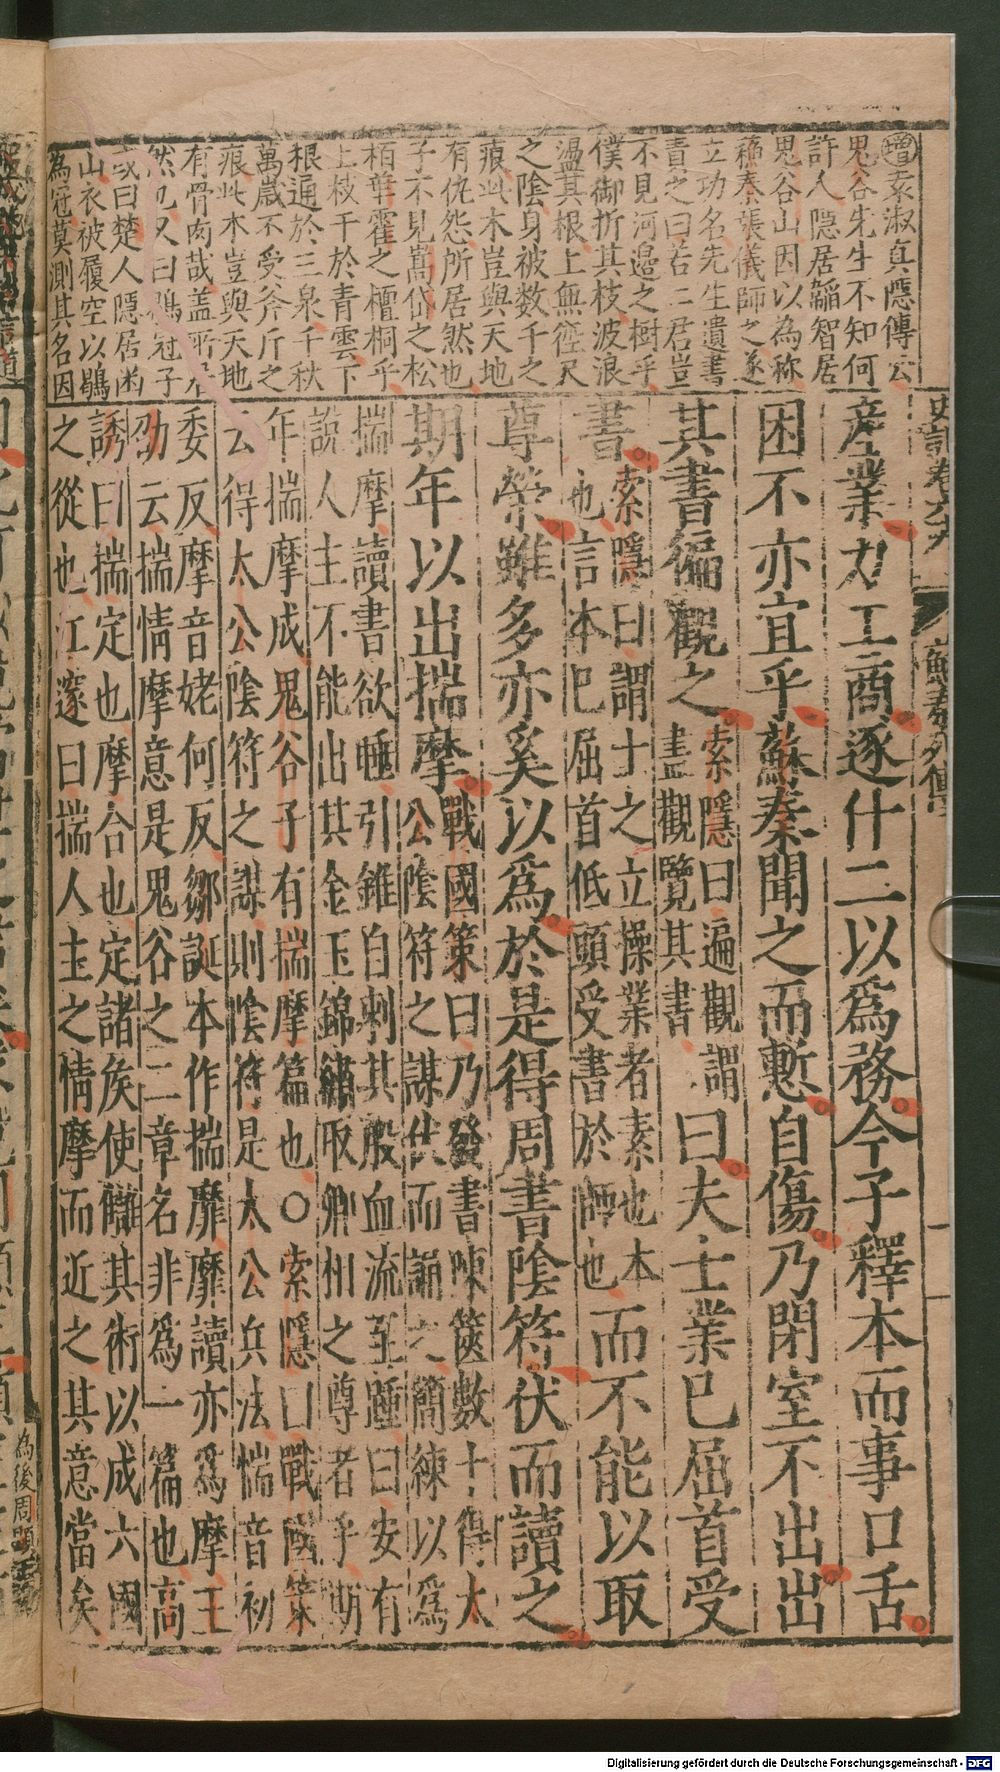 增袁淑真隱傳云
鬼谷先生不知何
許人隱居韜智居
鬼谷山因以為称
蘇秦張儀師之遂
立功名先生遺書
責之曰若二君豈
不見河邉之樹乎
僕御折其枝波浪
盪其根上無徑尺
之陰身被数千之
痕此木豈與天地
有仇怨所居然也
子不見嵩岱之松
栢華霍之檀桐乎
上枝干於青雲下
根通於三泉千秋
萬歲不受斧斤之
痕此木豈與天地
有骨肉哉盖所居
然也又曰鶡冠子
或曰楚人隱居
山衣被履空以鶡
為冠莫測其名因
史記卷六九
蘇秦列傳
產業力工商逐什二以爲務今子釋本而事口舌
困不亦宜乎蘇秦聞之而慙自傷乃閉室不出出
其書徧觀之
索隱曰遍觀謂
盡觀覽其書
曰夫士業已屈首受
書
索隱曰謂士之立操業者素也本
也言本已屈首低頭受書於師也
而不能以取
尊榮雖多亦奚以爲於是得周書陰符伏而讀之
期年以出揣摩
戰國策曰乃發書陳篋數十得太
公陰符之謀伏而誦之簡練以爲
揣摩讀書欲睡引錐自刺其股血流至踵曰安有
說人主不能出其金玉錦繡取卿相之尊者乎期
年揣摩成鬼谷子有揣摩篇也〇索隱曰戰國策
云得太公陰符之謀則陰符是太公兵法揣音初
委反摩音姥何反鄒誕本作揣靡靡讀亦爲摩王
劭云揣情摩意是鬼谷之二章名非爲一篇也高
誘曰揣定也摩合也定諸侯使讎其術以成六國
之從也江邃曰揣人主之情摩而近之其意當矣
為後周顯王
Digitalisierung gefördert durch die Deutsche Forschungsgemeinschaft - DFG